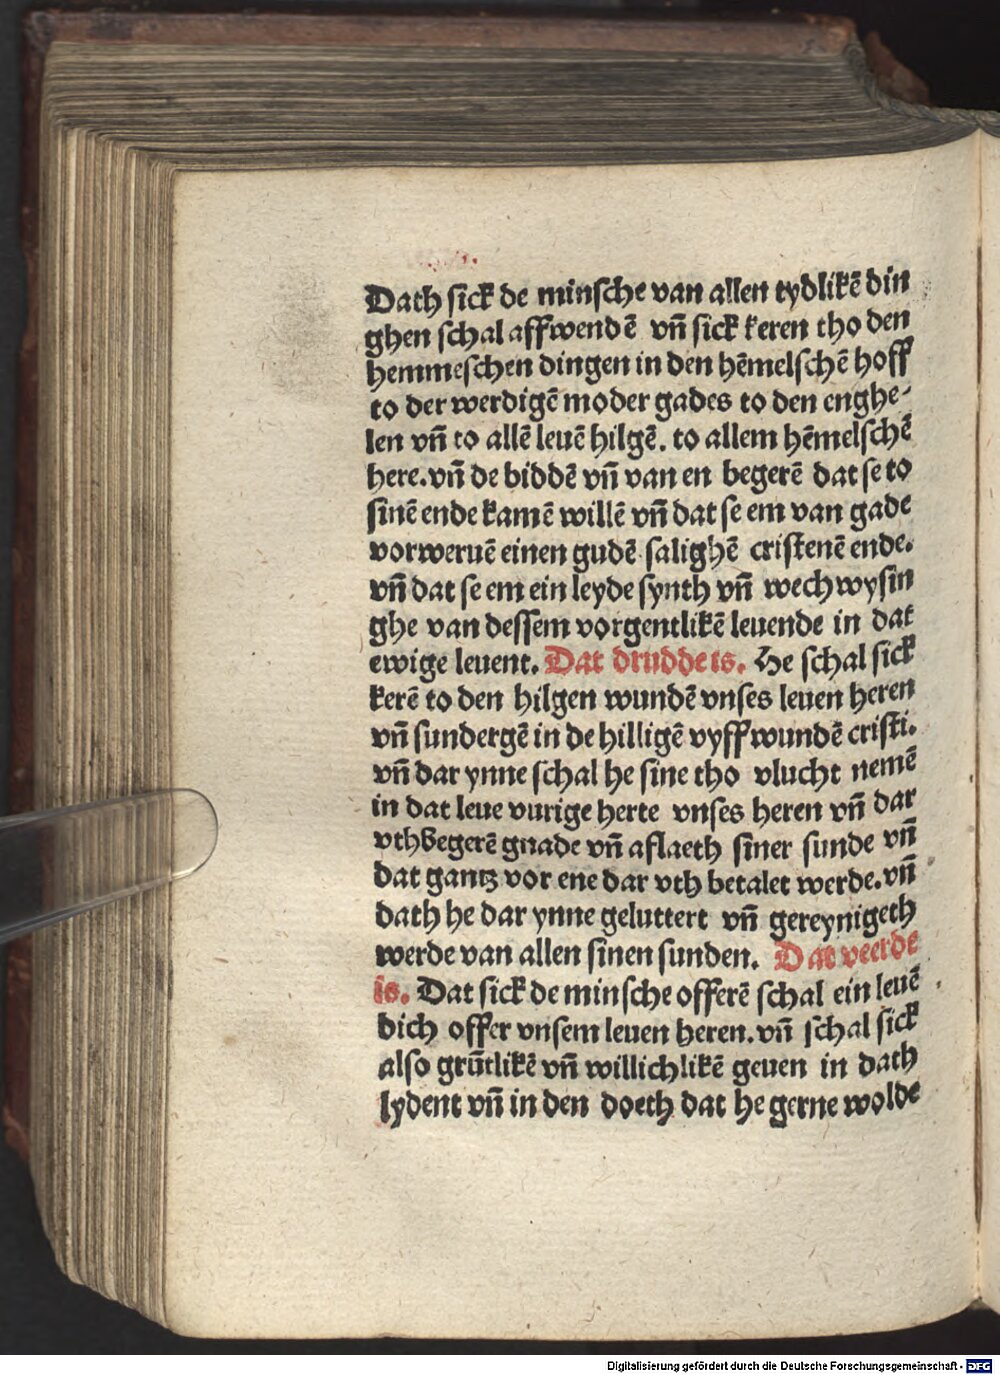 Dath sick de minsche van allen tydlikē din
ghen schal affwendē vñ sick keren tho den
hemmeschen dingen in den hēmelschē hoff
to der werdigē moder gades to den enghe-
len vñ to allē leuē hilgē. to allem hēmelschē
here. vñ de biddē vñ van en begerē dat se to
sinē ende kamē willē vñ dat se em van gade
vorweruē einen gudē salighē cristenē ende.
vñ dat se em ein leyde synth vñ wech wysin
ghe van dessem vorgentlikē leuende in dat
ewige leuent. Dat drudde is. He schal sick
kerē to den hilgen wundē vnses leuen heren
vñ sundergē in de hilligē vyff wundē cristi.
vñ dar ynne schal he sine tho vlucht nemē
in dat leue vurige herte vnses heren vñ dar
vthbegerē gnade vñ aflaeth siner sunde vñ
dat gantz vor ene dar vth betalet werde. vñ
dath he dar ynne geluttert vñ gereynigeth
werde van allen sinen sunden. Dat veerde
is. Dat sick de minsche offerē schal ein leuē
dich offer vnsem leuen heren. vñ schal sick
also grūtlikē vñ willichlikē geuen in dath
lydent vñ in den doeth dat he gerne wolde
Digitalisierung gefördert durch die Deutsche Forschungsgemeinschaft - DFG